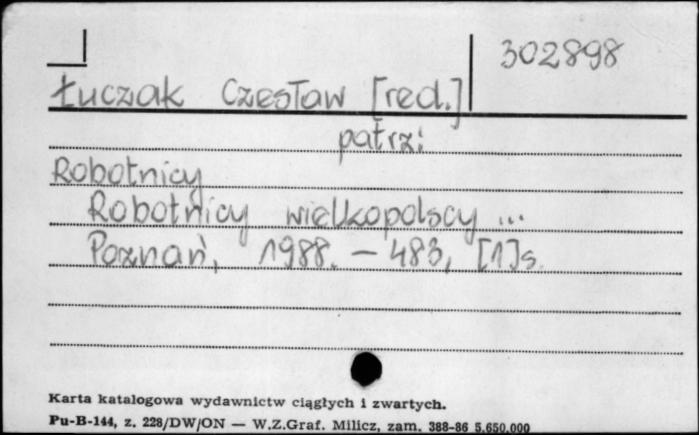 302898
Łuczak Czesław [red.]
patrz:
Robotnicy
Robotnicy wielkopolscy ...
Poznań, 1988. — 483, [1]s.
Karta katalogowa wydawnictw ciągłych i zwartych.
Pu-B-144, z. 228/DW/ON — W.Z.Graf. Milicz, zam. 388-86 5.650.000